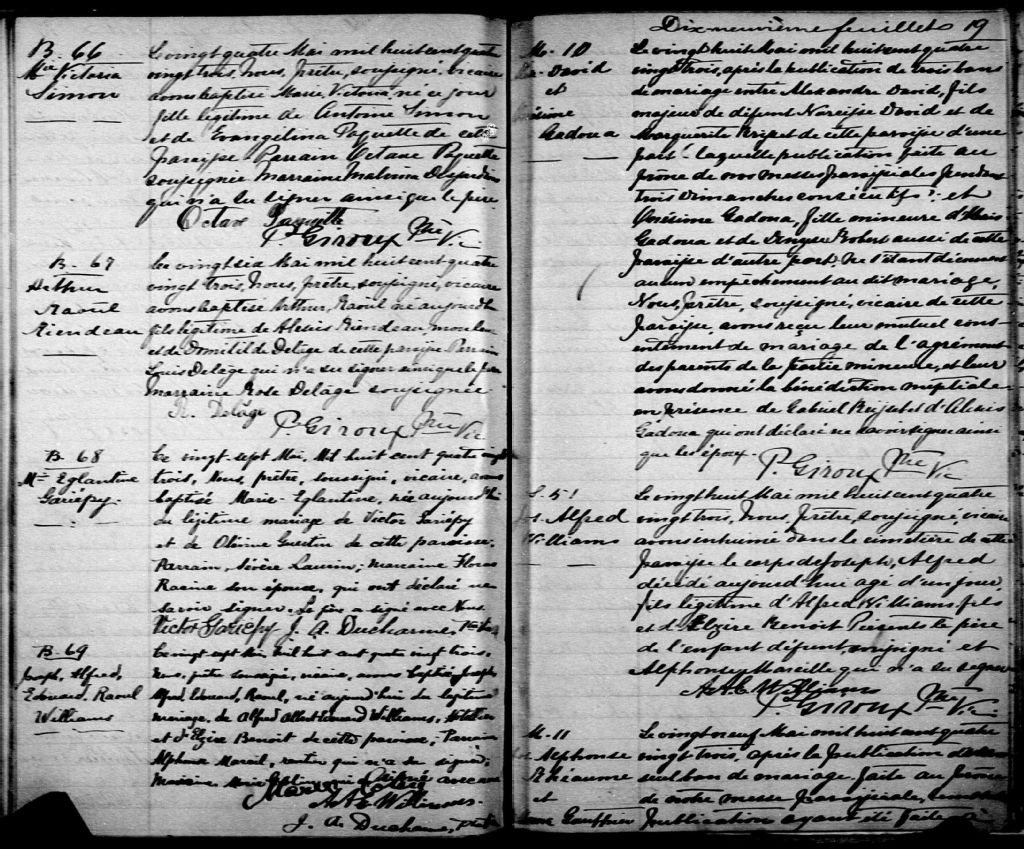 B. 66
Mie Victoria
Simon
Le vingt quatre Mai mil huit cent quatre
vingt trois, Nous, prêtre, soussigné, vicaire
avons baptisé Marie Victoria, né ce jour
fille légitime de Antoine Simon
et de Evangelina Paquette de cette
paroisse Parrain Octave Paquette
soussignée Marraine Malvina Desjardins
qui n'a su signer ainsi que le père
Octave Paquette
P. Giroux Ptre Vic
B. 67
Arthur
Raoul
Riendeau
Le vingt six Mai mil huit cent quatre
vingt trois, Nous, prêtre, soussigné, vicaire
avons baptisé Arthur, Raoul né aujourd'h
fils légitime de Alexis Riendeau
et de Domitilde Delâge de cette paroisse Parrain
Louis Delâge qui n'a su signer ainsi que le père
Marraine Rose Delâge soussignée
R. Delâge
P. Giroux Ptre Vic
B. 68
Mie Eglantine
Gariépy
Le vingt-sept Mai, Mil huit cent quatre vingt
trois, Nous, prêtre, soussigné, vicaire, avons
baptisé Marie-Eglantine, née aujourd'hui
du légitime mariage de Victor Gariépy
et de Guertin de cette paroisse.
Parrain, Sévère Laurin; Marraine Flores
Racine son épouse, qui ont déclaré ne
savoir signer. Le père a signé avec Nous.
Victor Gariepy J. A. Ducharme, Ptre Vic
B. 69
Joseph, Alfred,
Edouard, Raoul
Williams
Le vingt sept Mai Mil huit cent quatre vingt trois.
Nous, prêtre soussigné, vicaire, avons baptisé Joseph
Alfred, Edouard, Raoul, né aujourd'hui du légitime
mariage de Alfred Albert Edouard Williams, Hôtelier
et d'Elzire Benoit de cette paroisse; Parrain
Alphonse Marcil, rentier qui n'a su signer;
Marraine Marie qui a signé avec nous
A. A. E. Williams.
J. A. Ducharme, ptre
Dix neuvième feuillet 19
M. 10
David
et
Onésime
Gadoua
Le vingt huit Mai mil huit cent quatre
vingt trois, après la publication de trois bans
de mariage entre Alexandre David, fils
majeur de défunt Narcisse David et de
Marguerite de cette paroisse d'une
part; laquelle publication faite au
prône de nos messes paroissiales pendant
trois Dimanches consécutifs: et
Onésime Gadoua, fille mineure d'Alexis
Gadoua et de Denyse Robert aussi de cette
paroisse d'autre part. Ne s'étant découvert
aucun empêchement au dit mariage,
Nous, prêtre, soussigné, vicaire de cette
paroisse, avons reçu leur mutuel cons-
entement de mariage de l'agrément
des parents de la partie mineure, et leur
avons donné la bénédiction nuptiale
en présence de Gabriel et d'Alexis
Gadoua qui ont déclaré ne savoir signer ainsi
que les époux.
P. Giroux Ptre Vic
S. 51
Jos. Alfred
Williams
Le vingt huit Mai mil huit cent quatre
vingt trois, Nous, prêtre, soussigné, vicaire
avons inhumé dans le cimetière de cette
paroisse le corps de Joseph, Alfred
décédé aujourd'hui agé d'un jour,
fils légitime d'Alfred Williams fils
et d'Elzire Benoit Présents le père
de l'enfant défunt, soussigné et
Alphonse Marseille qui n'a su signer
A. A. E. Williams
P. Giroux Ptre Vic.
M. 11
Alphonse
Rhéaume
et
Gauthier
Le vingt neuf Mai mil huit cent quatre
vingt trois, après la publication
seul ban de mariage faite au prône
de notre messe paroissiale,
publication ayant été faite